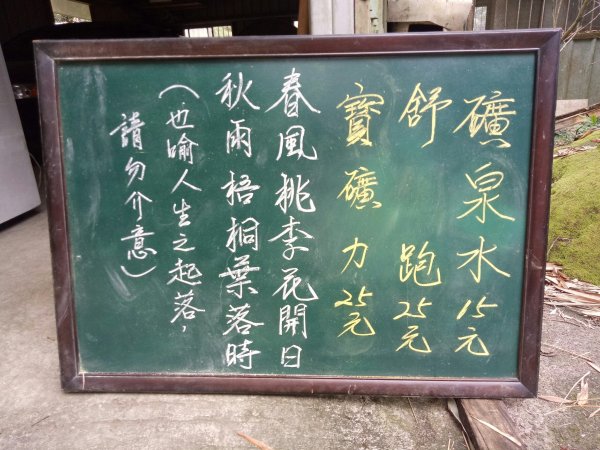 礦泉水15元
舒跑25元
寶礦力25元
春風桃李花開日
秋雨梧桐葉落時
(也喻人生之起落,
請勿介意)